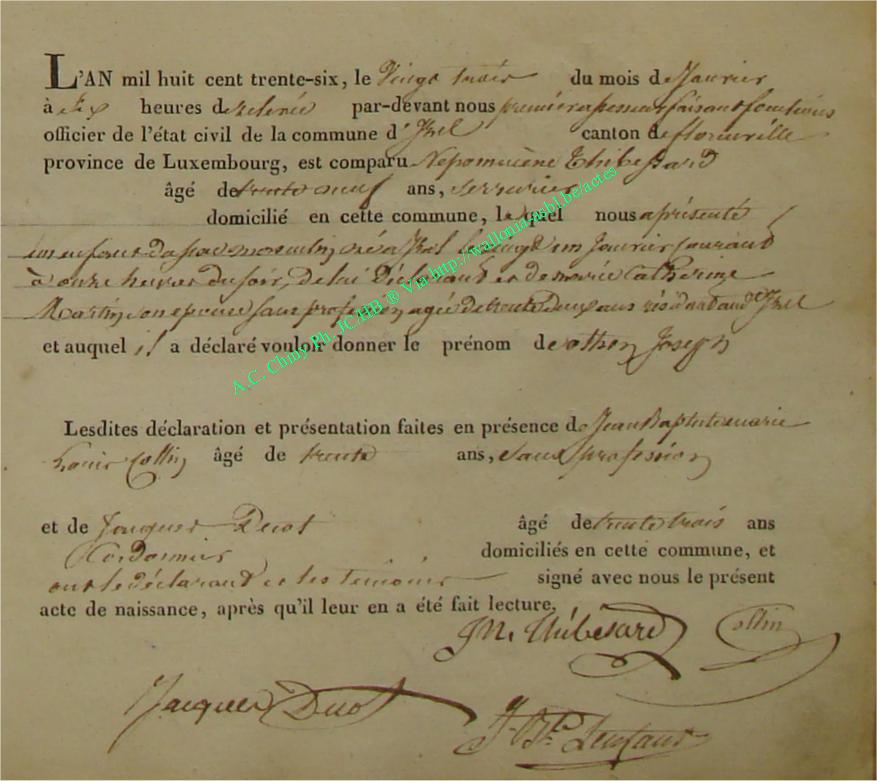 L'AN mil huit cent trente-six, le Vingt trois du mois de Janvier
à six heures de relevée par-devant nous premier assesseur faisant fonctions
officier de l'état civil de la commune d'Izel canton de florenville
province de Luxembourg, est comparu Nepomucène Thibessard
âgé de trente neuf ans, serrurier
domicilié en cette commune, lequel nous a présenté
un enfant du sexe masculin, né à Izel le vingt un Janvier courant
à onze heures du soir, de lui Déclarant et de marie Catherine
Martin son épouse sans profession agée de trente deux ans résidant audt Izel
et auquel il a déclaré vouloir donner le prénom de othon Joseph
Lesdites déclaration et présentation faites en présence de Jean Baptiste marie
Louis Collin âgé de trente ans, sans profession
et de Jacques Ducot âgé de trente trois ans
Cordonnier domiciliés en cette commune, et
ont le déclarant et les témoins signé avec nous le présent
acte de naissance, après qu'il leur en a été fait lecture.
JN. Thibésard Collin
Jacques Ducot
J. Bte
A.C. Chiny Ph. JC.HB ® Via http://wallonia-asbl.be/actes